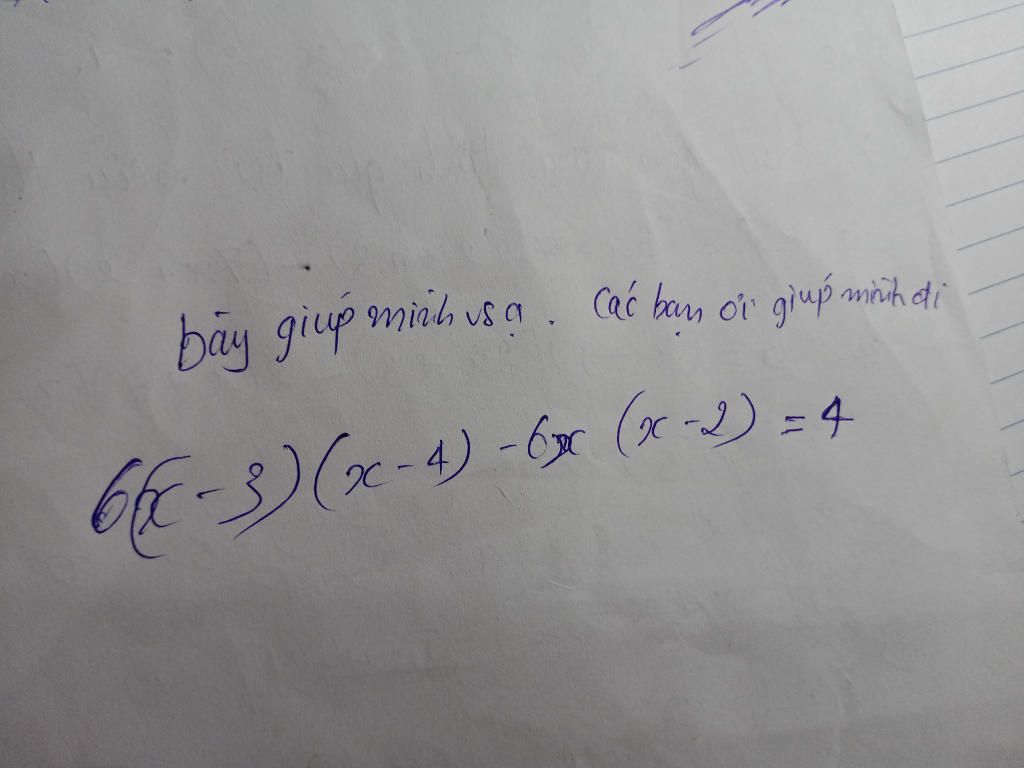 bày giúp mình vs ạ. Các bạn ơi giúp mình đi
6(x - 3)(x - 4) - 6x (x - 2) = 4